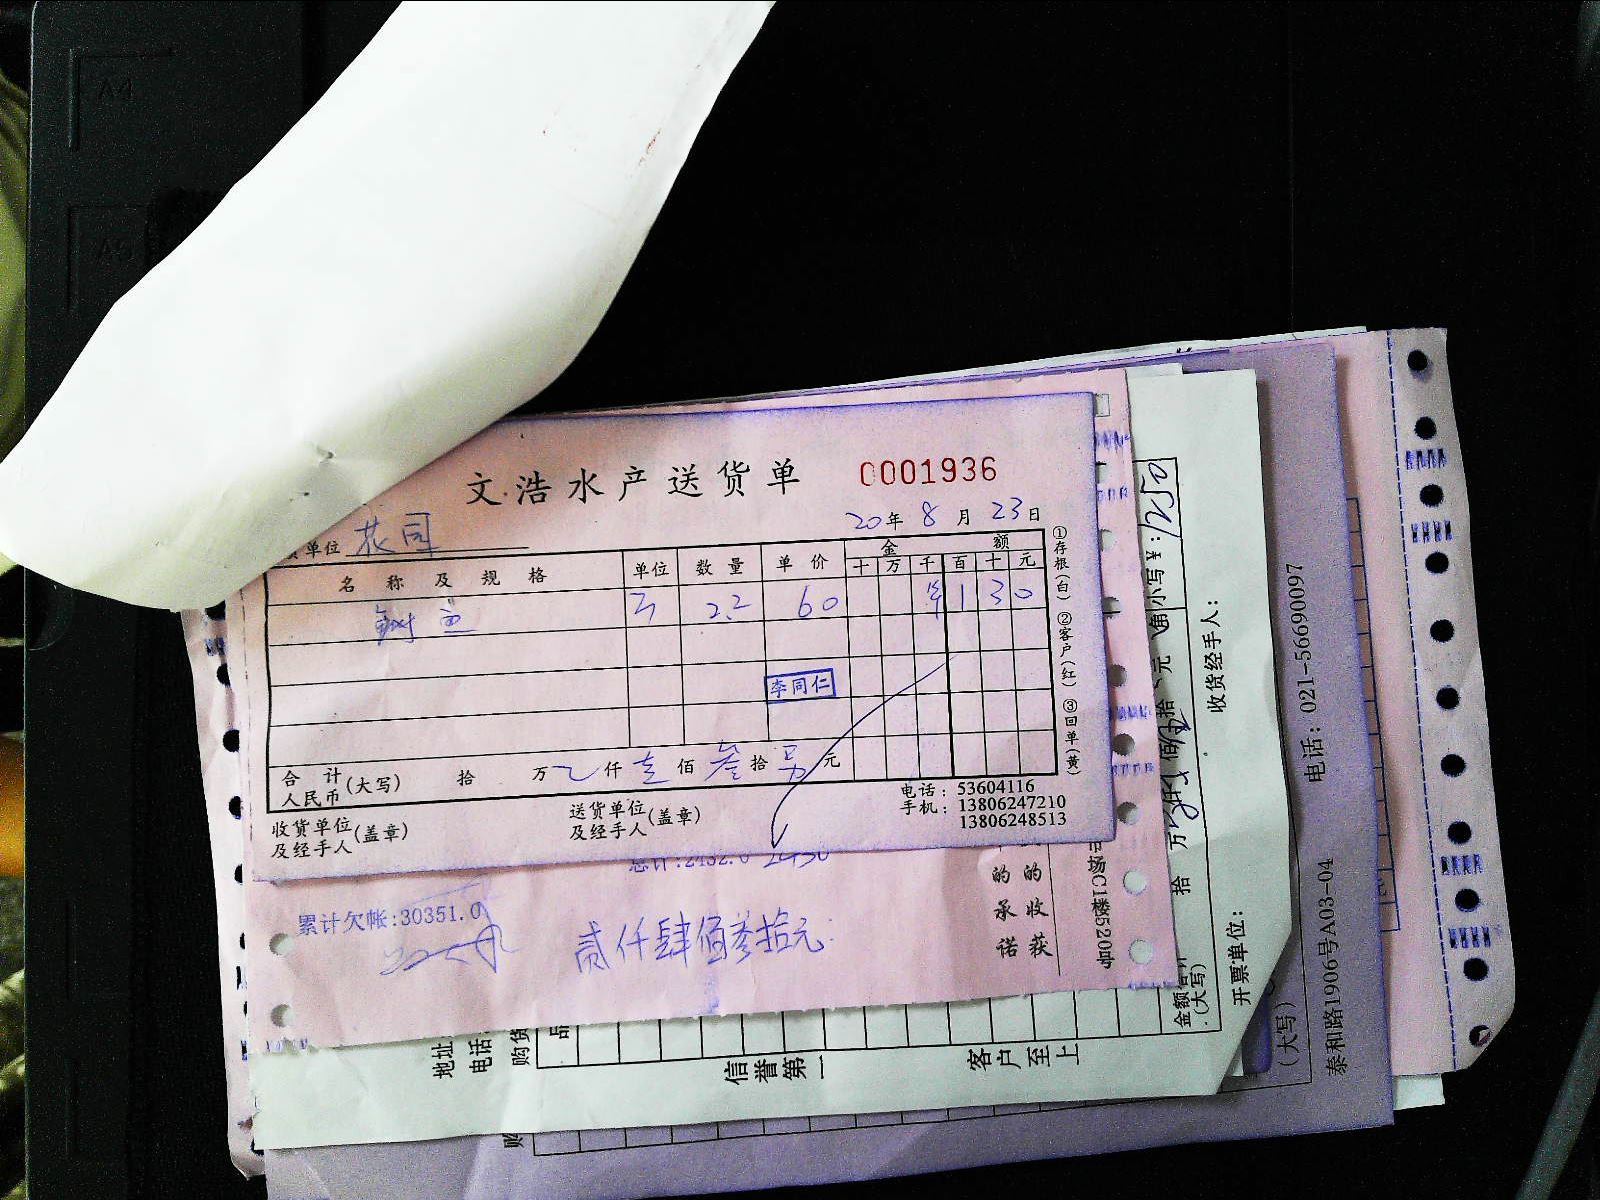 文浩水产送货单 0001936
20年 8月 23日
单位
名称及规格 单位 数量 单价 金额
十 万 千 百 十 元
鱼 22 60 1 3 0
李同仁
合计人民币(大写) 拾 万 仟 壹 佰 叁 拾 另 元
收货单位及经手人(盖章) 送货单位及经手人(盖章)
电话：53604116
手机：13806247210
13806248513
①存根(白) ②客户(红) ③回单(黄)
总计:2432.0 2430
累计欠帐:30351.0
贰仟肆佰叁拾元
的 的
承 收
诺 获
场C1楼5520号
小写¥:
收货经手人:
拾 万
金额合计(大写)
开票单位:
地址
电话:
购货
品
信誉第一
客户至上
(大写)
电话: 021-56690097
泰和路1906号A03-04
购